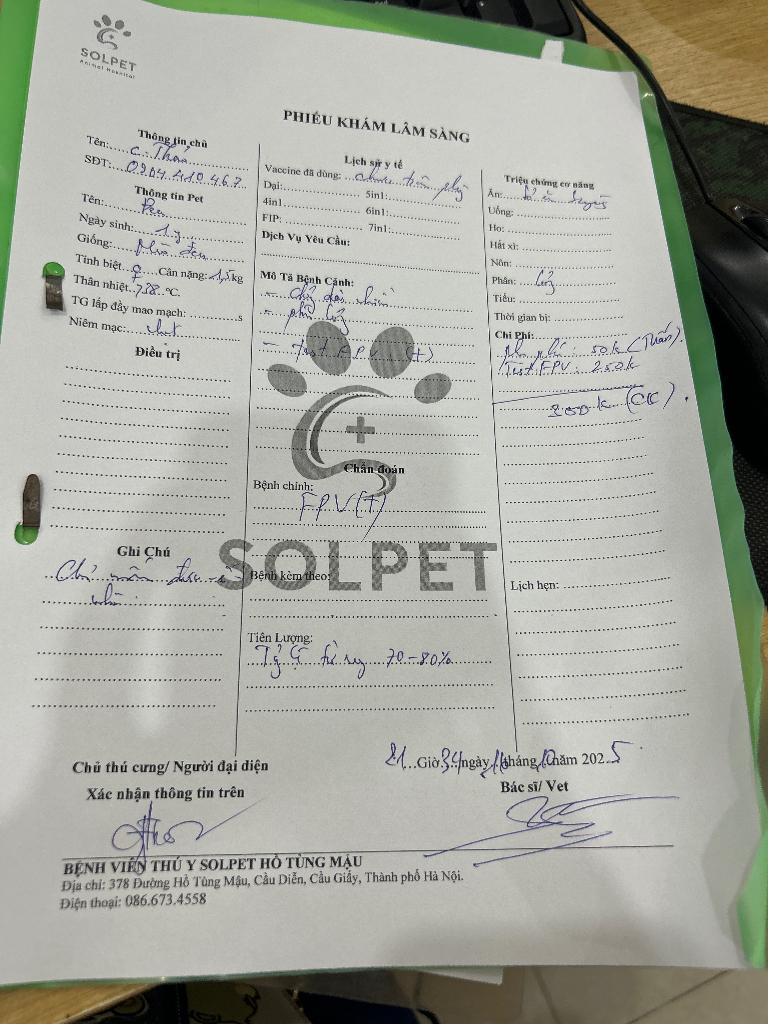 SOLPET
Animal Hospital
PHIẾU KHÁM LÂM SÀNG
Thông tin chủ
Tên: c. Thảo
SĐT: 0904 410 467
Thông tin Pet
Tên: Đen
Ngày sinh: 1y
Giống:
Tính biệt ♀ Cân nặng: 1,5kg
Thân nhiệt: °C.
TG lấp đầy mao mạch: s
Niêm mạc: nhợt
Điều trị
Ghi Chú
Lịch sử y tế
Vaccine đã dùng: chưa tiêm phòng
Dại: 5in1:
4in1 6in1:
FIP: 7in1:
Dịch Vụ Yêu Cầu:
Mô Tả Bệnh Cảnh:
- phân lỏng
- Test FPV (+)
Chẩn đoán
Bệnh chính:
FPV (+)
SOLPET
Bệnh kèm theo:
Tiên Lượng:
Tỷ lệ tử vong 70-80%
Triệu chứng cơ năng
Ăn:
Uống:
Ho:
Hắt xì:
Nôn:
Phân: lỏng
Tiểu:
Thời gian bị:
Chi Phí:
: 50k
Test FPV: 250k
(CK).
Lịch hẹn:
21 Giờ 34 ngày 16 tháng 10 năm 2025
Chủ thú cưng/ Người đại diện
Xác nhận thông tin trên
Bác sĩ/ Vet
BỆNH VIỆN THÚ Y SOLPET HỒ TÙNG MẬU
Địa chỉ: 378 Đường Hồ Tùng Mậu, Cầu Diễn, Cầu Giấy, Thành phố Hà Nội.
Điện thoại: 086.673.4558